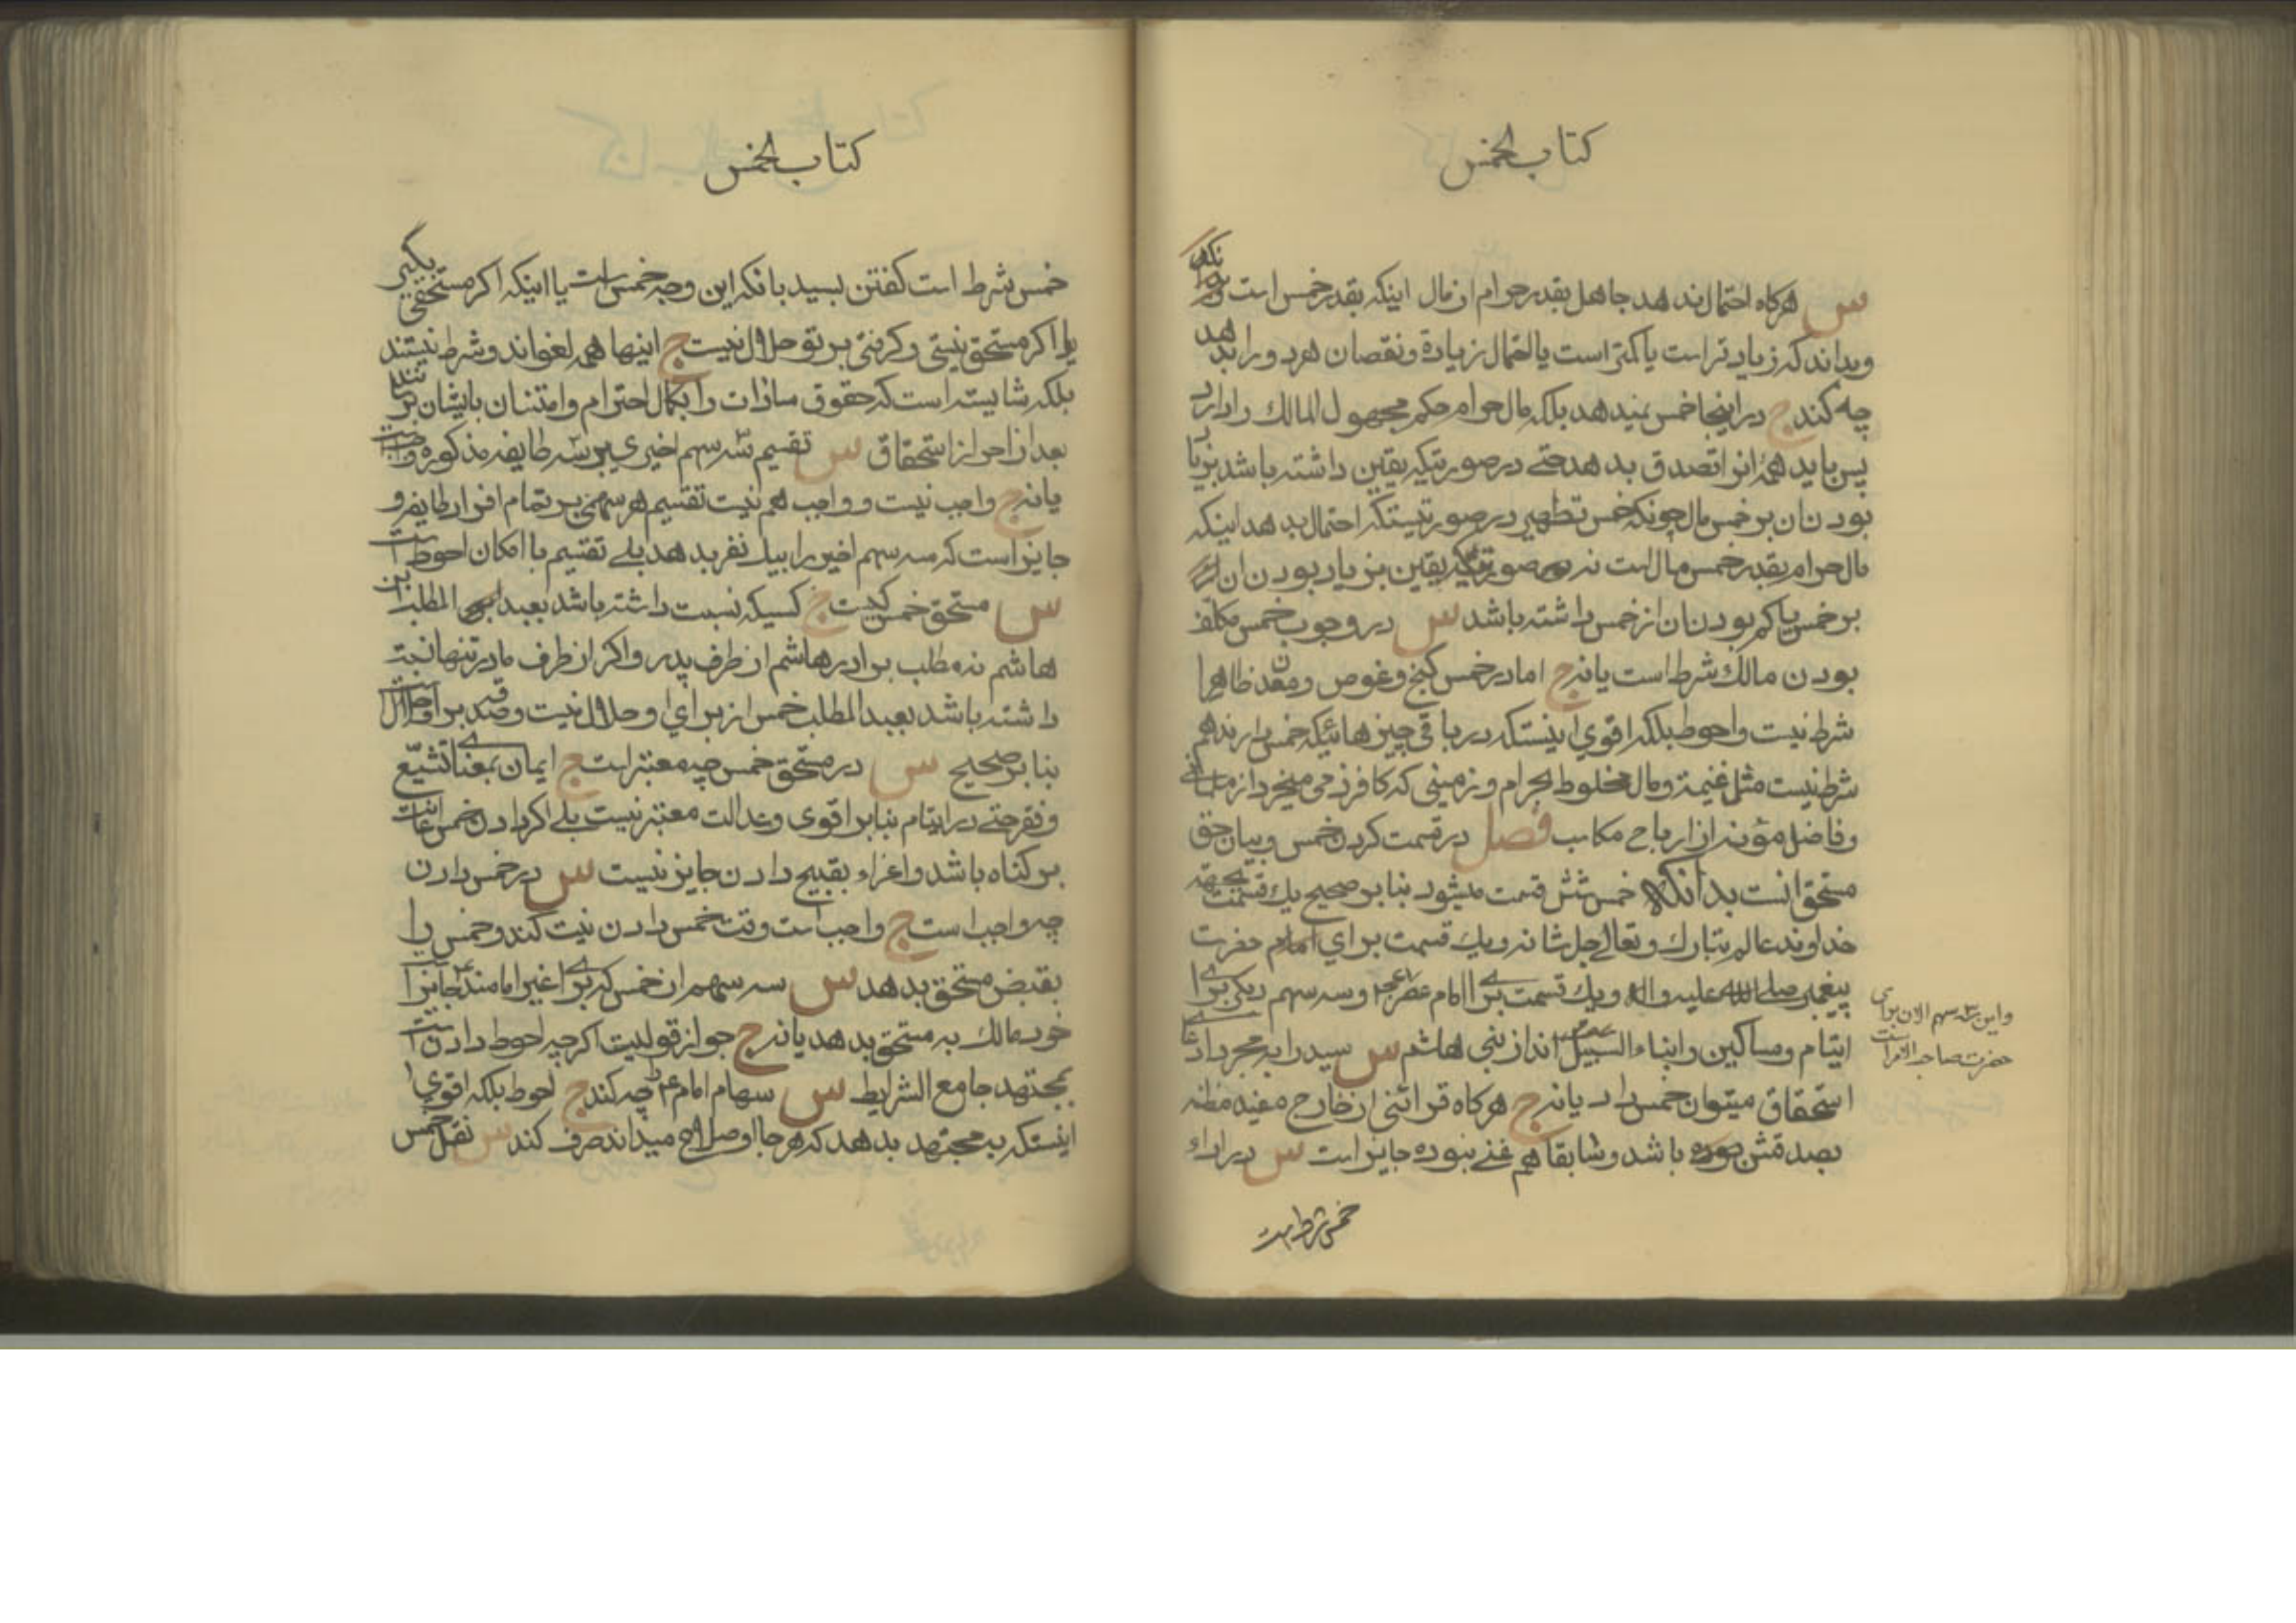 کتاب الخمس
س هرکاه احتمال ندهد جاهل بقدر حرام از مال اینکه بقدر خمس است
وبداند که زیادتر است یا کمتر است یا احتمال زیادة ونقصان هردو را بدهد
چه کند ج در اینجا خمس نمیدهد بلکه مال حرام حکم مجهول المالک را دارد
پس باید همهٔ انرا تصدق بدهد حتے در صورتیکه یقین داشته باشد بزیاد
بودن ان بر خمس مال چونکه خمس تطهیر در صورتیستکه احتمال بدهد اینکه
مال حرام بقدر خمس مال است نه صورتیکه یقین بزیاد بودن ان
بر خمس یا کم بودن ان از خمس داشته باشد س در وجوب خمس مکلف
بودن مالک شرط است یا نه ج اما در خمس کنج و غوص ومعدن ظاهرا
شرط نیست واحوط بلکه اقوی اینستکه در باقی چیزهائیکه خمس دارند هم
شرط نیست مثل غنیمة ومال مخلوط بحرام و زمینی که کافر ذمی میخرد از مسلم
وفاضل مؤنه از ارباح مکاسب فصل در قسمت کردن خمس و بیان حق
مستحق انست بدانکه خمس شش قسمت میشود بنا بر صحیح یک قسمت بجهة
خداوند عالم تبارک وتعالی جل شانه و یک قسمت برای حضرت
پیغمبر صلی الله علیه واله و یک قسمت برای امام عصر عج و سه سهم دیکر برای
ایتام ومساکین وابناء السبیل اند از بنی هاشم س سید را به مجرد ادعا
استحقاق میتوان خمس داد یا نه ج هرکاه قرائنی از خارج مفید مظنه
بصدقش بوده باشد وسابقا هم غنی نبوده جایز است س در اداء
خمس شرط است
واین سه سهم الان برای
حضرت صاحب الامر است
کتاب الخمس
خمس شرط است کفتن بسید بانکه این وجه خمس است یا اینکه اکر مستحقی بکیر
یا اکر مستحق نیستی و کرفتی بر تو حلال نیست ج اینها همه لغواند وشرط نیستند
بلکه شایسته است که حقوق سادات را بکمال احترام وامتنان بایشان برسانند
بعد از احراز استحقاق س تقسیم سه سهم اخیری بر سه طایفه مذکوره واجب است
یا نه ج واجب نیست و واجب هم نیست تقسیم هر سهمی بر تمام افراد طایفه و
جایز است که سه سهم اخیر را بیک نفر بدهد بلے تقسیم با امکان احوط است
س مستحق خمس کیست ج کسیکه نسبت داشته باشد بعبد المطلب بن
هاشم نه مطلب برادر هاشم از طرف پدر و اکر از طرف مادر تنها نسبت
داشته باشد بعبد المطلب خمس از برای او حلال نیست وصدقه بر او حلال
بنا بر صحیح س در مستحق خمس چه معتبر است ج ایمان بمعنای تشیّع
وفقر حتے در ایتام بنا بر اقوی وعدالت معتبر نیست بلے اکر دادن خمس اعانت
بر کناه باشد و اغراء بقبیح دادن جایز نیست س در خمس دادن
چه واجب است ج واجب است وقت خمس دادن نیت کند و خمس را
بقبض مستحق بدهد س سه سهم از خمس که برای غیر امامند ع جایز است
خود مالک به مستحق بدهد یا نه ج جواز قولیست اکرچه احوط دادن است
بمجتهد جامع الشرایط س سهام امام ع را چه کند ج احوط بلکه اقوی
اینستکه به مجتهد بدهد که هر جا اصلح میداند صرف کند س نقل خمس